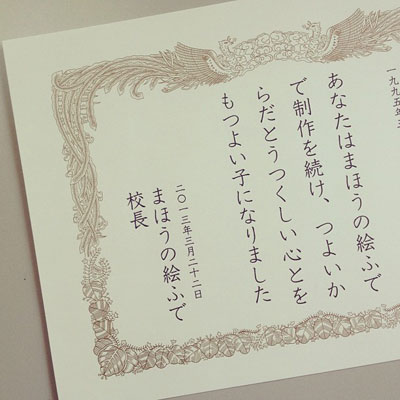 一九九五年
あなたはまほうの絵ふで
で制作を続け、つよいか
らだとうつくしい心とを
もつよい子になりました
二〇一三年三月二十二日
まほうの絵ふで
校長